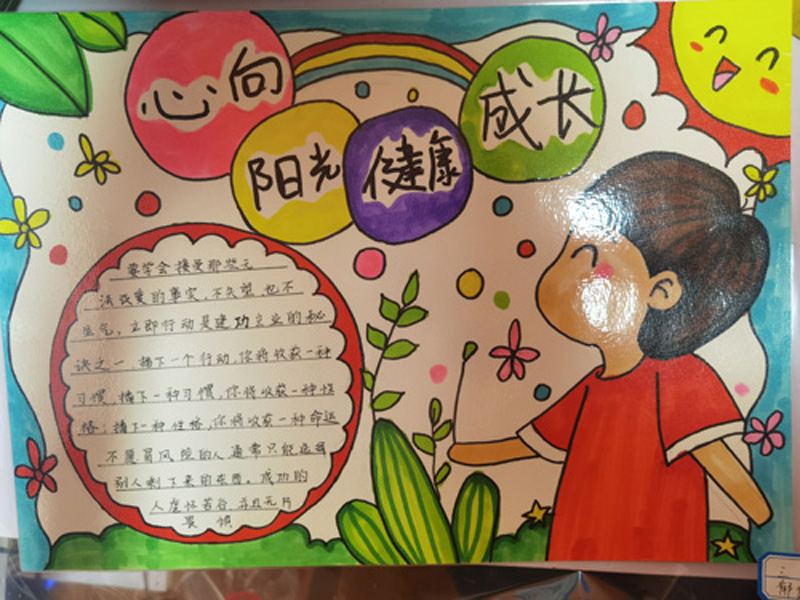 心向
阳光 健康
成长
要学会接受那些无
法改变的事实,不失望,也不
生气。立即行动是建功立业的秘
诀之一,播下一个行动,你将收获一种
习惯,播下一种习惯,你将收获一种性
格;播下一种性格,你将收获一种命运
不愿冒风险的人通常只能选择
别人剩下来的东西。成功的
人虚怀若谷,并且无